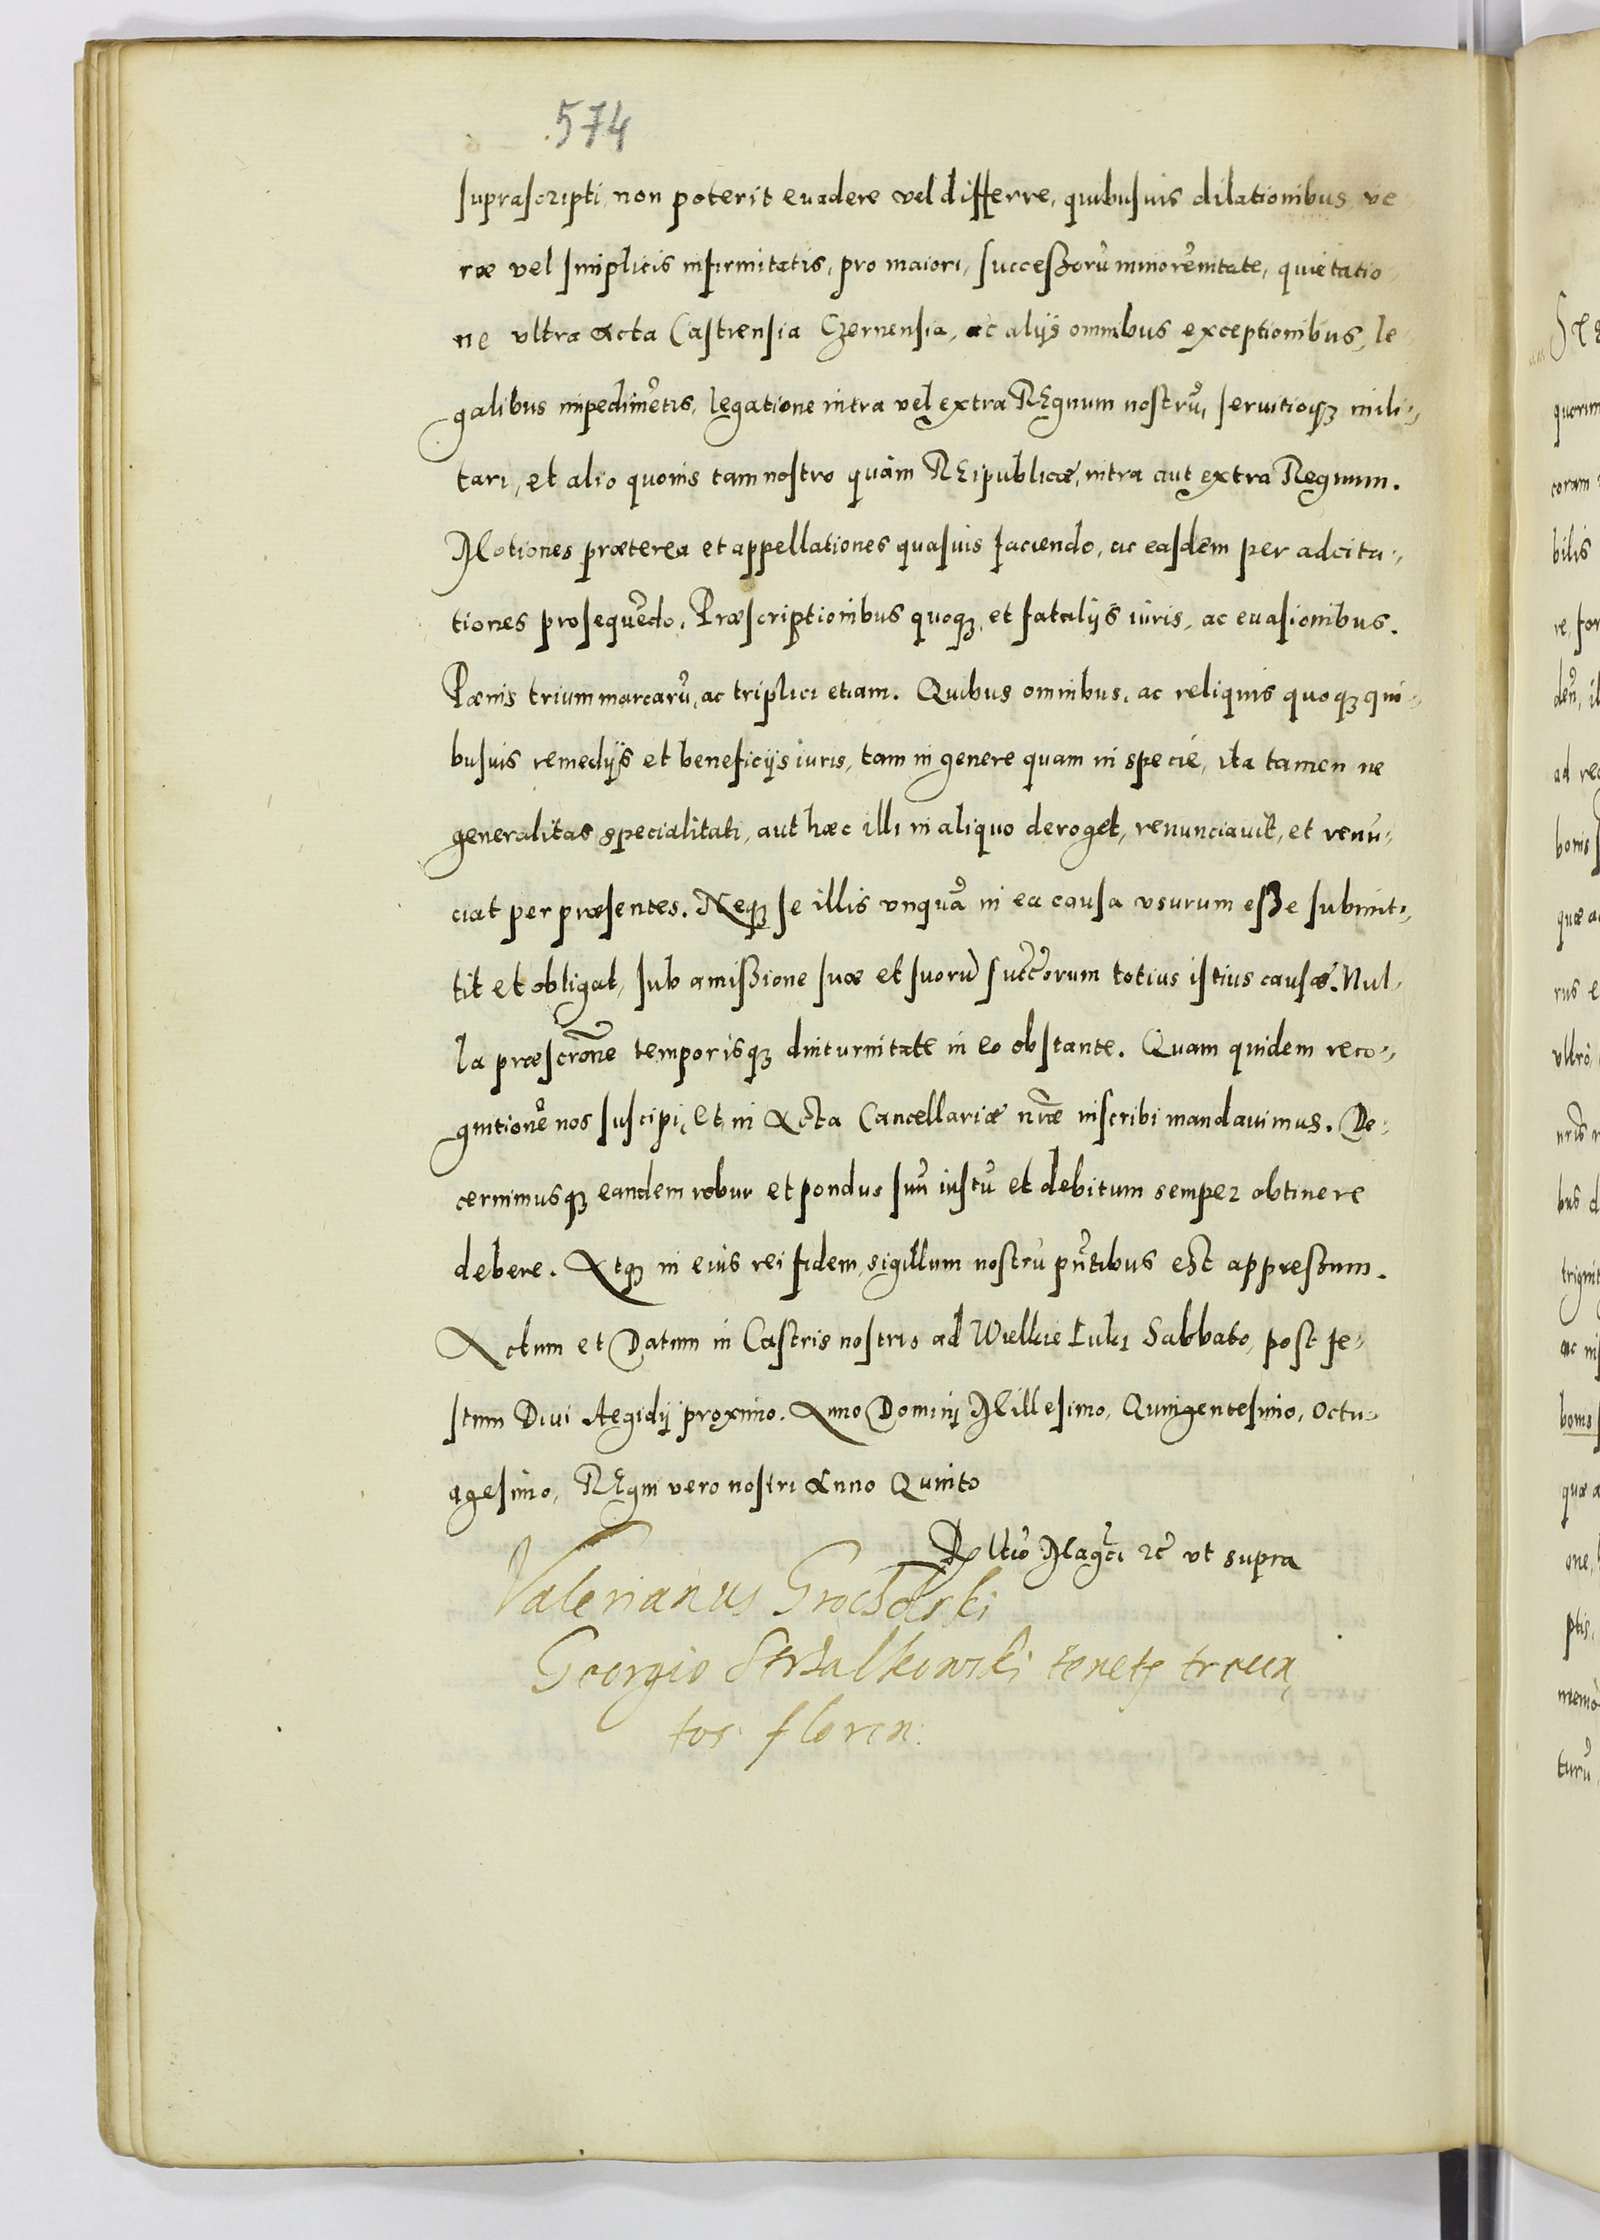 574
suprascripti non poterit euadere vel differre, quibusuis dilationibus, ve
ræ vel simplicis infirmitatis, pro maiori, successorũ minorẽnitate, quietatio
ne vltra Acta Castrensia Czernensia, ac alijs omnibus exceptionibus, le
galibus impedimẽtis, legatione intra vel extra REgnum nostrũ, seruitioqȝ mili⸗
tari, et alio quouis tam nostro quàm REipublicæ, intra aut extra Regnum.
Motiones præterea et appellationes quasuis faciendo, ac easdem per adcita⸗
tiones prosequẽdo. Præscriptionibus quoqȝ, et fatalijs iuris, ac euasionibus.
Pænis trium marcarũ, ac triplici etiam. Quibus omnibus, ac reliquis quoqȝ qui⸗
busuis remedijs et beneficijs iuris, tam in genere quam in specie, ita tamen ne
generalitas specialitati, aut hæc illi in aliquo deroget, renunciauit, et renũ⸗
ciat per præsentes. Neqȝ se illis vnquã in ea causa vsurum esse submit⸗
tit et obligat, sub amissione suæ et suorũ succ̃orum totius istius causæ. Nul⸗
la præscrõne temporisqȝ diuturnitate in eo obstante. Quam quidem reco⸗
gnitionẽ nos suscipi, Et in Acta Cancellariæ nr̃æ inscribi mandauimus. De⸗
cernimusqȝ eandem robur et pondus suũ iustũ et debitum semper obtinere
debere. Atqȝ in eius rei fidem, sigillum nostrũ pñtibus est appressum.
Actum et Datum in Castris nostris ad Wielkie Łuki Sabbato, post fe⸗
stum Diui Aegidij proximo. Anno Dominj Millesimo, Quingentesimo, Octu⸗
agesimo, REgni vero nostri Anno Quinto
Rltio Magci ꝛc̃ vt supra
Valerianus Grocholski
Georgio Strzalkowski tenetʒ trecen
tos floren: